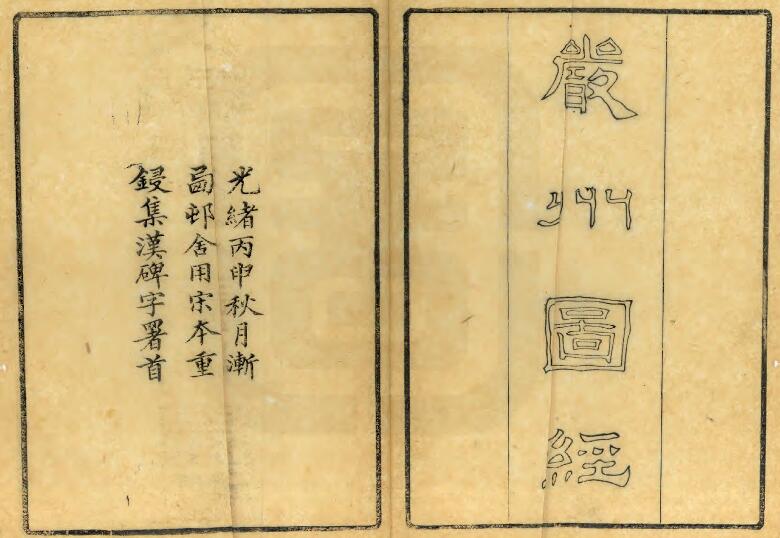 嚴州圖經
光緒丙申秋月漸
啚邨舍用宋本重
鋟集漢碑字署首